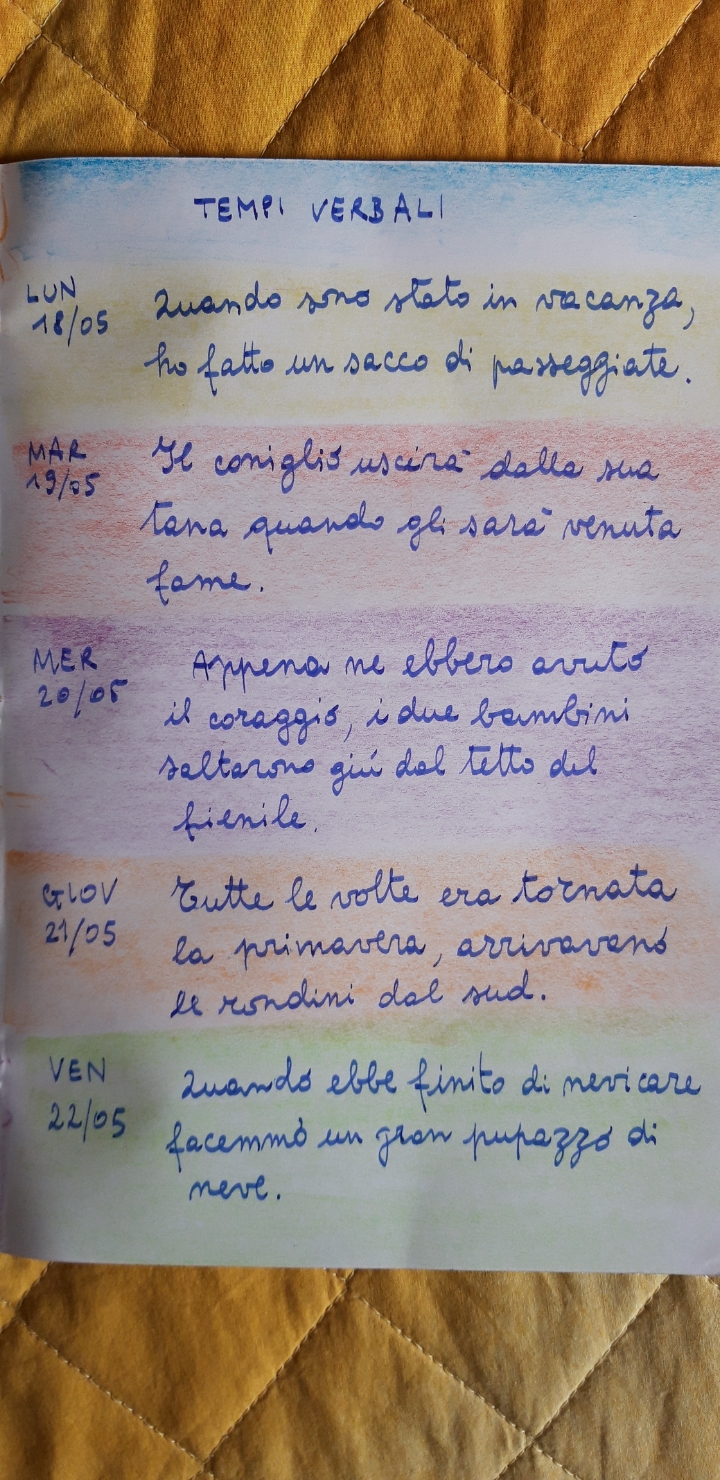 TEMPI VERBALI
LUN
18/05
Quando sono stato in vacanza,
ho fatto un sacco di passeggiate.
MAR
19/05
Il coniglio uscirà dalla sua
tana quando gli sarà venuta
fame.
MER
20/05
Appena ne ebbero avuto
il coraggio, i due bambini
saltarono giù dal tetto del
fienile.
GIOV
21/05
Tutte le volte era tornata
la primavera, arrivavano
le rondini dal sud.
VEN
22/05
Quando ebbe finito di nevicare
facemmo un gran pupazzo di
neve.